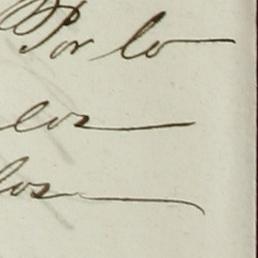 Por lo
los
los